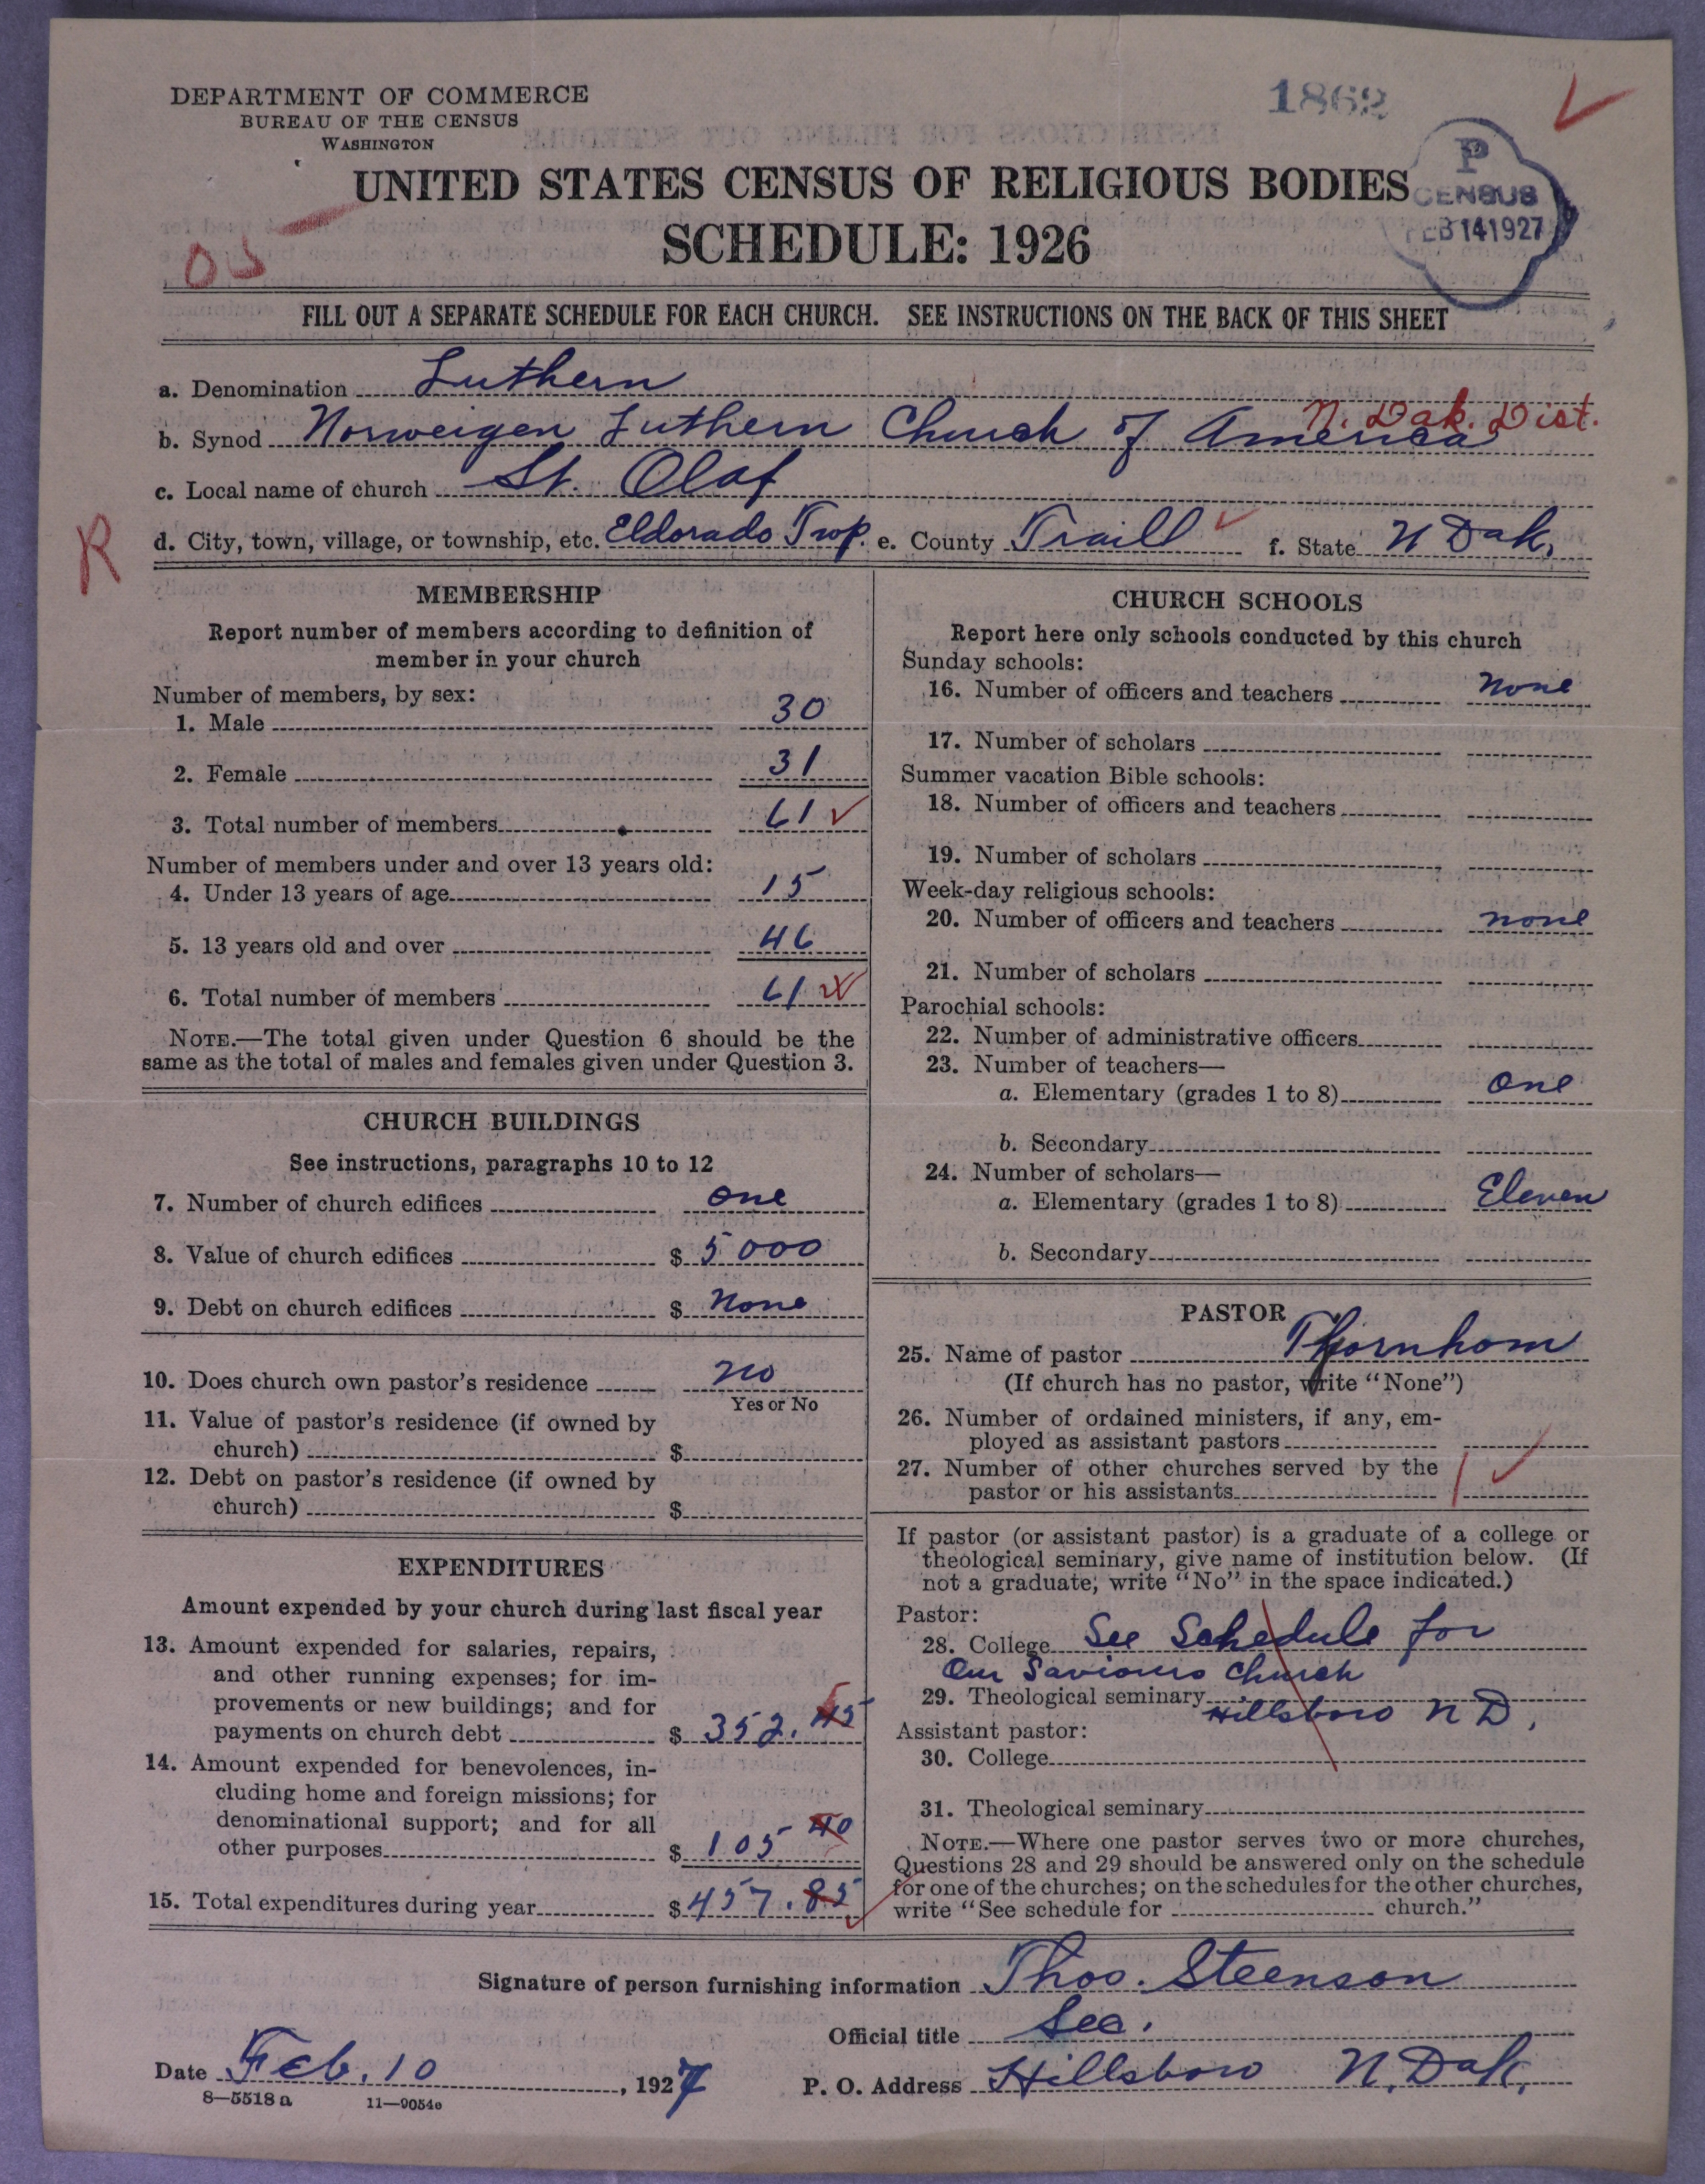 DEPARTMENT OF COMMERCE
BUREAU OF THE CENSUS
WASHINGTON
1862
UNITED STATES CENSUS OF RELIGIOUS BODIES
SCHEDULE: 1926
P
CENSUS
FEB 14 1927
05
FILL OUT A SEPARATE SCHEDULE FOR EACH CHURCH. SEE INSTRUCTIONS ON THE BACK OF THIS SHEET
a. Denomination Luthern
N. Dak. Dist.
b. Synod Norweigen Luthern Church of America
c. Local name of church St. Olaf
R
d. City, town, village, or township, etc. Eldorado Twp. e. County Traill f. State N Dak.
MEMBERSHIP
Report number of members according to definition of
member in your church
Number of members, by sex:
1. Male 30
2. Female 31
3. Total number of members 61
Number of members under and over 13 years old:
4. Under 13 years of age 15
5. 13 years old and over 46
6. Total number of members 61
NOTE.—The total given under Question 6 should be the
same as the total of males and females given under Question 3.
CHURCH BUILDINGS
See instructions, paragraphs 10 to 12
7. Number of church edifices one
8. Value of church edifices $ 5000
9. Debt on church edifices $ None
10. Does church own pastor's residence no
Yes or No
11. Value of pastor's residence (if owned by
church) $
12. Debt on pastor's residence (if owned by
church) $
EXPENDITURES
Amount expended by your church during last fiscal year
13. Amount expended for salaries, repairs,
and other running expenses; for im-
provements or new buildings; and for
payments on church debt $ 352.45
14. Amount expended for benevolences, in-
cluding home and foreign missions; for
denominational support; and for all
other purposes $ 105 40
15. Total expenditures during year $ 457.85
CHURCH SCHOOLS
Report here only schools conducted by this church
Sunday schools:
16. Number of officers and teachers none
17. Number of scholars
Summer vacation Bible schools:
18. Number of officers and teachers
19. Number of scholars
Week-day religious schools:
20. Number of officers and teachers none
21. Number of scholars
Parochial schools:
22. Number of administrative officers
23. Number of teachers—
a. Elementary (grades 1 to 8) one
b. Secondary
24. Number of scholars—
a. Elementary (grades 1 to 8) Eleven
b. Secondary
PASTOR
25. Name of pastor Thjornhom
(If church has no pastor, write "None")
26. Number of ordained ministers, if any, em-
ployed as assistant pastors
27. Number of other churches served by the
pastor or his assistants
If pastor (or assistant pastor) is a graduate of a college or
theological seminary, give name of institution below. (If
not a graduate, write "No" in the space indicated.)
Pastor:
28. College See Schedule for
Our Saviours Church
29. Theological seminary Hillsboro N D.
Assistant pastor:
30. College
31. Theological seminary
NOTE.—Where one pastor serves two or more churches,
Questions 28 and 29 should be answered only on the schedule
for one of the churches; on the schedules for the other churches,
write "See schedule for church."
Signature of person furnishing information Thos. Steenson
Official title Sec.
Date Feb. 10, 1927
P. O. Address Hillsboro N. Dak.
8—5518 a 11—9054e